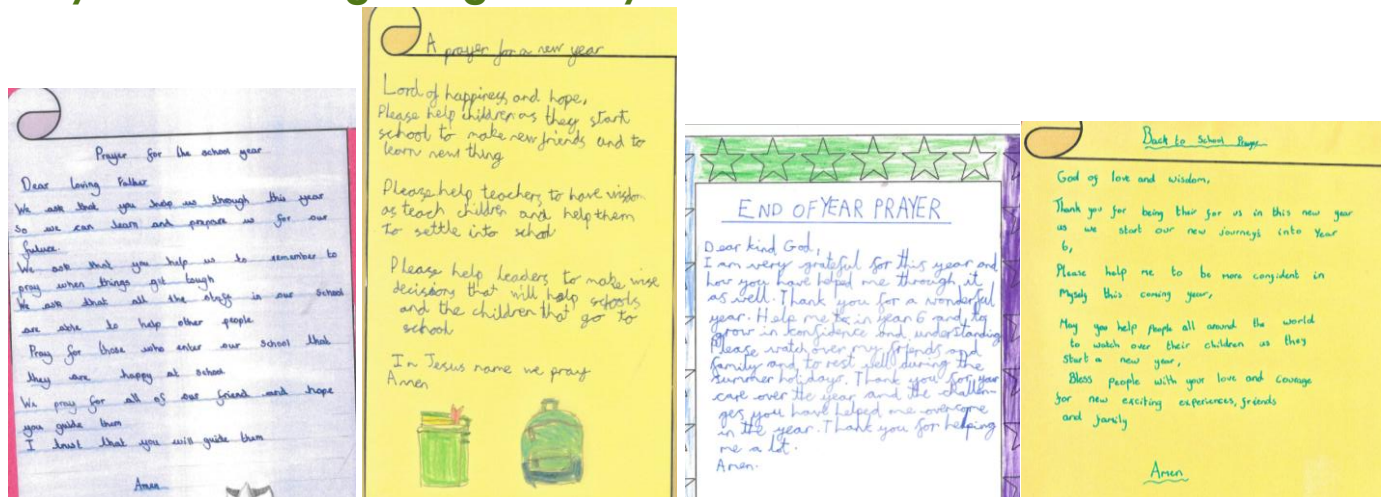 Prayer for the school year
Dear Loving Father
We ask that you help us through this year
so we can learn and prepare us for our
future.
We ask that you help us to remember to
pray when things get tough
We ask that all the in our school
are able to help other people
Pray for those who enter our school that
they are happy at school
We pray for all of our friend and hope
you guide them
I trust that you will guide them
Amen
A prayer for a new year
Lord of happiness and hope,
Please help children as they start
school to make new friends and to
learn new thing
Please help teachers to have wisdom
as teach children and help them
to settle into school
Please help leaders to make wise
decisions that will help schools
and the children that go to
school
In Jesus name we pray
Amen
END OF YEAR PRAYER
Dear kind God,
I am very grateful for this year and
how you have helped me through it
as well. Thank you for a wonderful
year. Help me in year 6 and to
grow in confidence and understanding
Please watch over my friends and
family and to rest well during the
summer holidays. Thank you for your
care over the year and the challen-
ges you have helped me overcome
in the year. Thank you for helping
me a lot.
Amen.
Back to School Prayer
God of love and wisdom,
Thank you for being their for us in this new year
as we start our new journeys into Year
6,
Please help me to be more confident in
Myself this coming year,
May you help people all around the world
to watch over their children as they
start a new year,
Bless people with your love and courage
for new exciting experiences, friends
and family
Amen